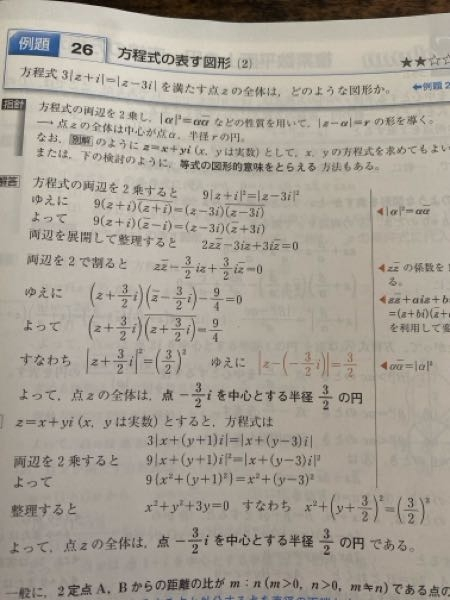 例題 26 方程式の表す図形 (2)
★★
方程式 3|z+i|=|z-3i| を満たす点zの全体は，どのような図形か。
←例題2
指針
方程式の両辺を2乗し，|α|²=αᾱ などの性質を用いて，|z-α|=r の形を導く。
→ 点zの全体は中心が点α，半径rの円。
なお，別解 のように z=x+yi (x，yは実数) として，x，yの方程式を求めてもよい
または，下の検討のように，等式の図形的意味をとらえる 方法もある。
解答 方程式の両辺を2乗すると 9|z+i|²=|z-3i|²
ゆえに 9(z+i)(z+i)‾=(z-3i)(z-3i)‾
◀|α|²=αᾱ
よって 9(z+i)(z̄-i)=(z-3i)(z̄+3i)
両辺を展開して整理すると 2zz̄-3iz+3iz̄=0
両辺を2で割ると zz̄-3/2iz+3/2iz̄=0
◀zz̄ の係数を1
る。
ゆえに (z+3/2i)(z̄-3/2i)-9/4=0
◀zz̄+aiz+bi
=(z+bi)(z̄+a
を利用して変
よって (z+3/2i)(z+3/2i)‾=9/4
すなわち |z+3/2i|²=(3/2)² ゆえに |z-(-3/2i)|=3/2
◀αᾱ=|α|²
よって，点zの全体は，点 -3/2i を中心とする半径 3/2 の円
z=x+yi (x，yは実数) とすると，方程式は
3|x+(y+1)i|=|x+(y-3)i|
両辺を2乗すると 9|x+(y+1)i|²=|x+(y-3)i|²
よって 9{x²+(y+1)²}=x²+(y-3)²
整理すると x²+y²+3y=0 すなわち x²+(y+3/2)²=(3/2)²
よって，点zの全体は，点 -3/2i を中心とする半径 3/2 の円 である。
一般に，2定点A，Bからの距離の比が m：n (m>0，n>0，m≠n) である点の